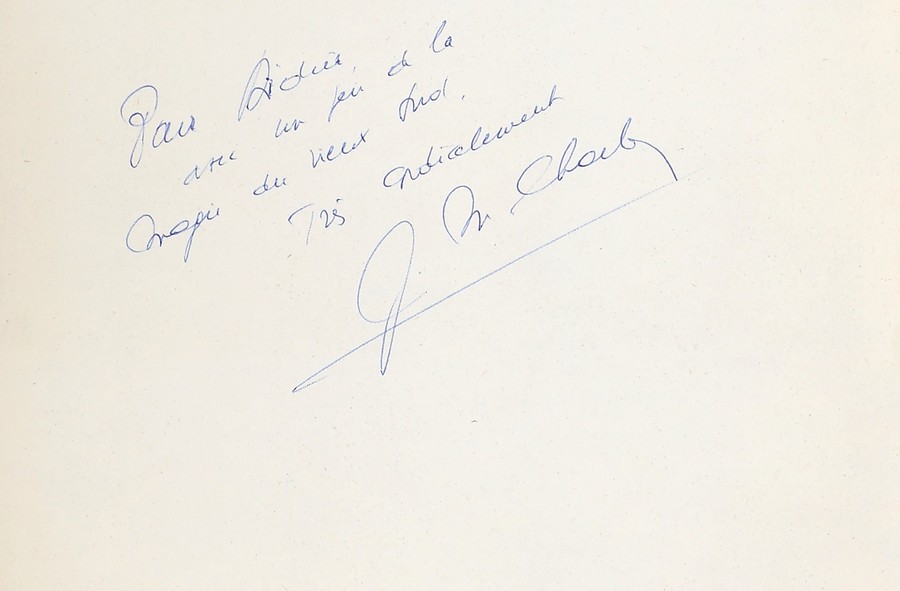 Pour Didier,
avec un peu de la
magie du vieux Sud.
Très cordialement
J M Charles